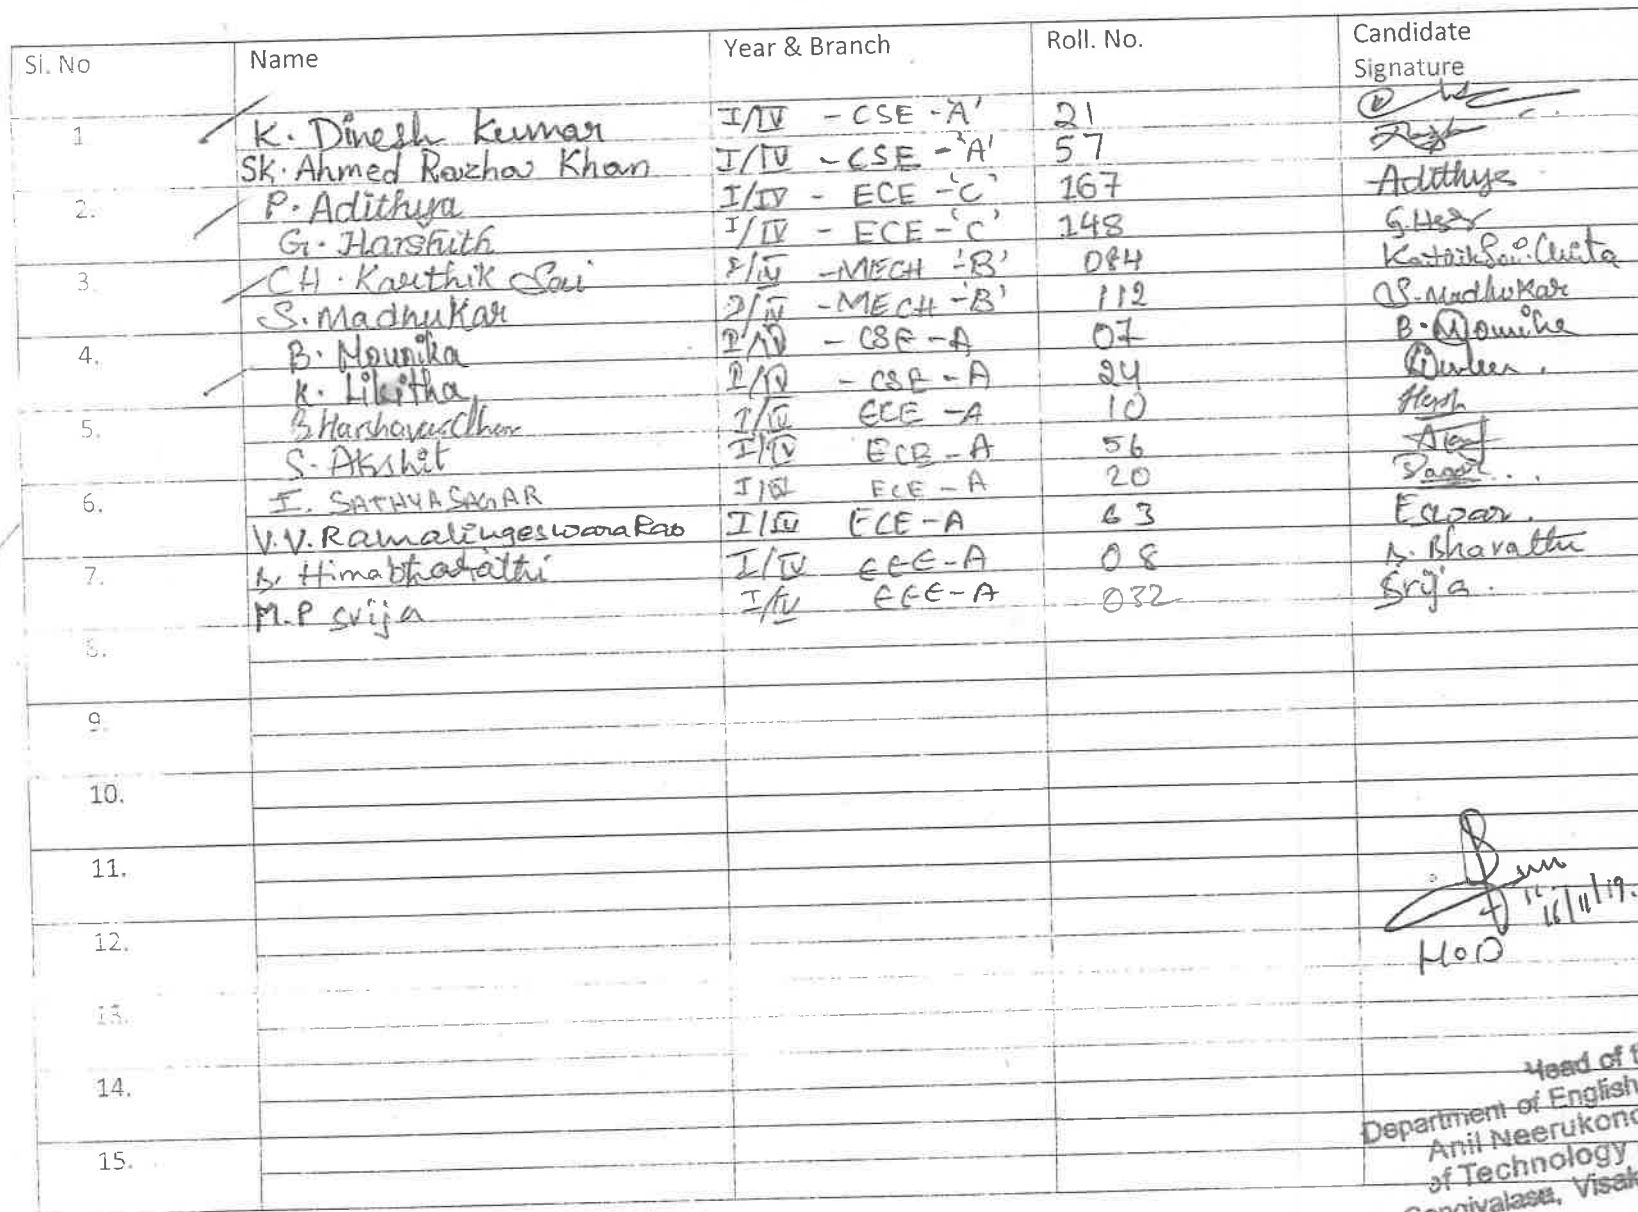 Sl. No Name Year & Branch Roll. No. Candidate
Signature
1 K. Dinesh Kumar I/IV - CSE -'A' 21
SK. Ahmed Razha Khan I/IV - CSE - 'A' 57
2. P. Adithya I/IV - ECE -'C' 167 Adithya
G. Harshith I/IV - ECE -'C' 148
3. CH. Karthik Sai I/IV - MECH -'B' 084
S. Madhukar I/IV - MECH -'B' 112 S. Madhukar
4. B. Mounika I/IV - CSE - A 07 B. Mounika
K. Likitha I/IV - CSE - A 24
5. I/IV ECE - A 10
S. Akshit I/IV ECE - A 56
6. I. SATHYASAGAR I/IV ECE - A 20
V.V. Ramalingeswara Rao I/IV ECE - A 63
7. B. Himabharathi I/IV EEE - A 08 B. Bharathi
M.P Srija I/IV EEE - A 032 Srija.
8.
9.
10.
11.
16/11/19.
12. HOD
13.
14. Head of t
Department of English
15. Anil Neerukond
of Technology